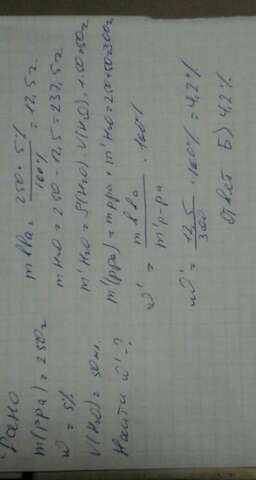 Дано
m(ppa) = 250г
w = 5%
V(H₂O) = 50мл.
Найти w'-?
m вва = 250 · 5% / 100% = 12,5г
m H₂O = 250 - 12,5 = 237,5г
m' H₂O = P(H₂O) · V(H₂O) = 1 · 50 = 50г
m'(ppa) = m ppa + m' H₂O = 250 + 50 = 300г
w' = m вва / m' p-pa · 100%
w' = 12,5 / 300 · 100% = 4,2%
Ответ Б) 4,2%